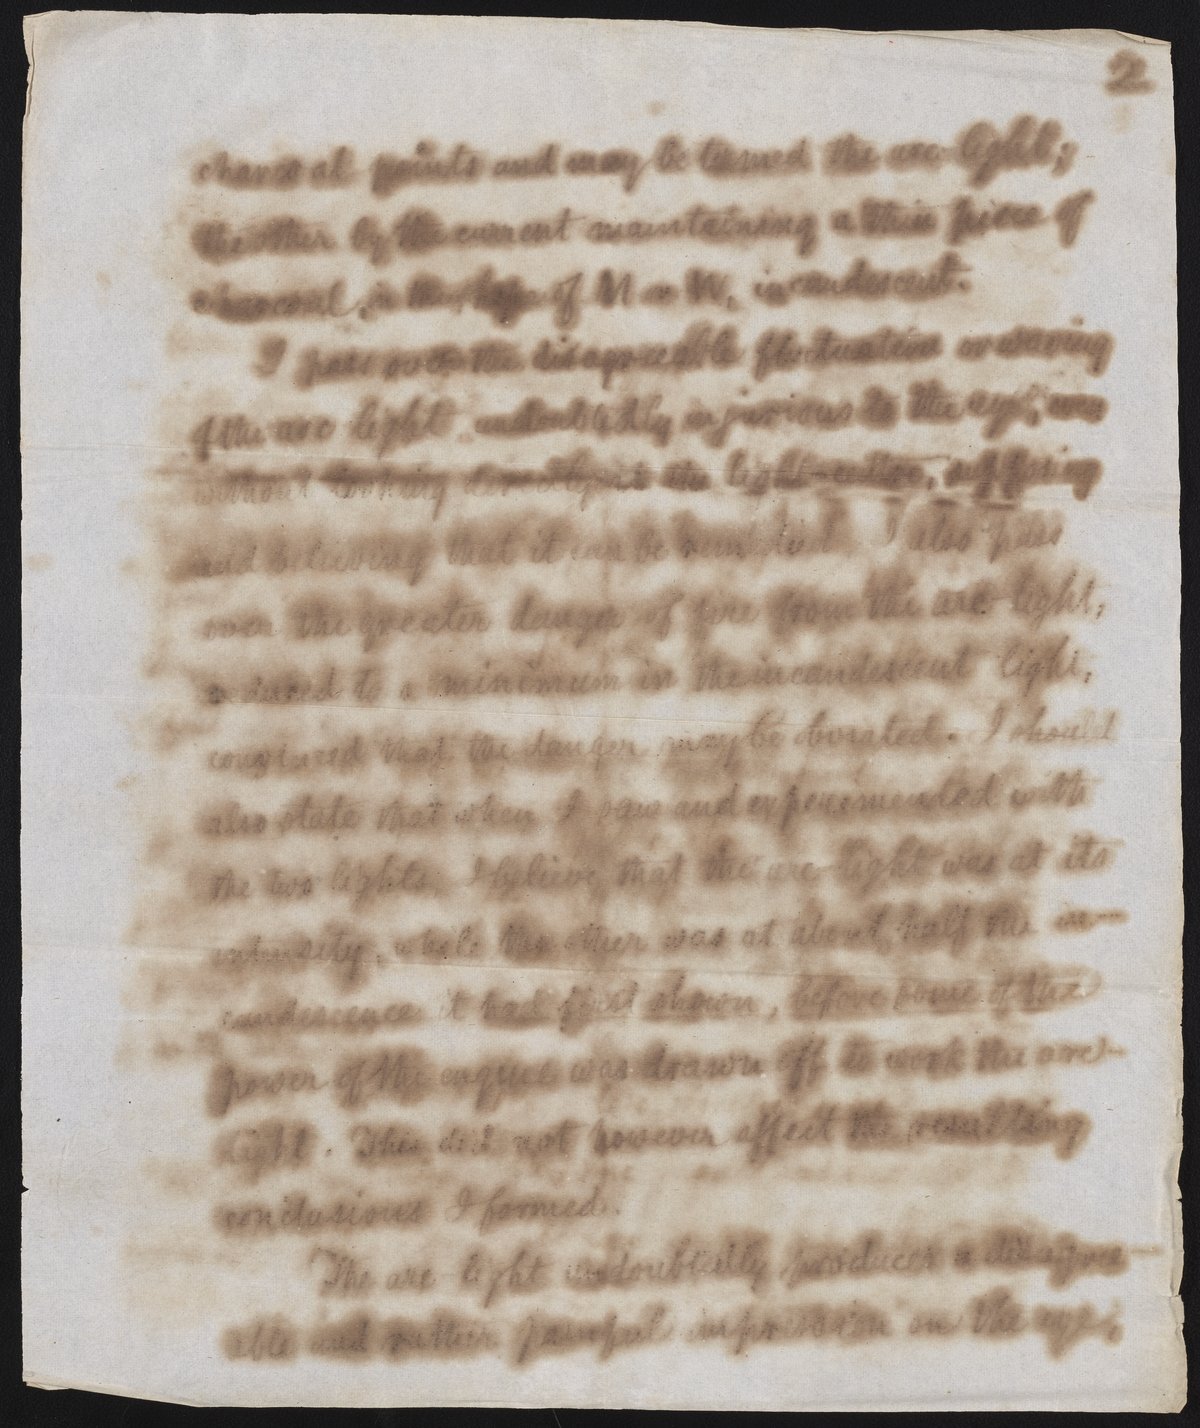 2
charcoal points and may be termed the arc-light;
the other by the current maintaining a thin piece of
charcoal, in the of M or W, incandescent.
I pass over the disagreeable fluctuation or waving
of the arc light undoubtedly injurious to the eye, even
without looking directly at the light-centre,
and believing that it can be remedied. I also pass
over the greater danger of fire from the arc-light,
reduced to a minimum in the incandescent light,
convinced that the danger may be obviated. I should
also state that when I saw and experimented with
the two lights, I believe that the arc-light was at its
intensity, while the other was at about half the in-
candescence it had first shown, before some of the
power of the engine was drawn off to work the arc-
light. This did not however affect the resulting
conclusions I formed.
The arc-light undoubtedly produces a disagree
able and rather painful impression on the eye,